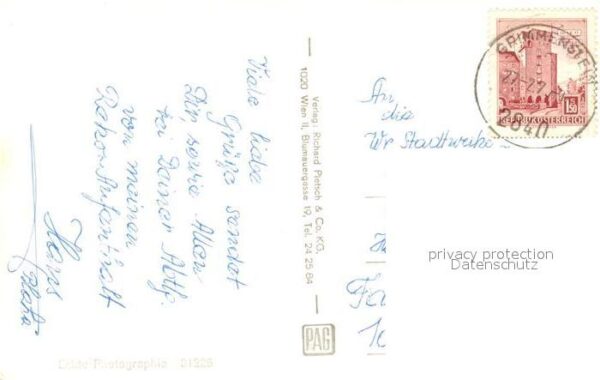 Viele liebe
Grüße sendet
Dir sowie Allen
bei Deiner Abtlg.
von meinem
Reko-Aufenthalt
Hans
Verlag: Richard Pietsch & Co. KG,
1020 Wien II, Blumauergasse 19, Tel. 24 25 84
PAG
Echte Photographie 21326
GRIMMENSTEIN
2840
REPUBLIK ÖSTERREICH
1.50
An
die
Wr Stadtwerke
privacy protection
Datenschutz